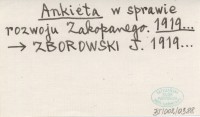 Ankieta w sprawie
rozwoju Zakopanego. 1919...
→ ZBOROWSKI J. 1919...